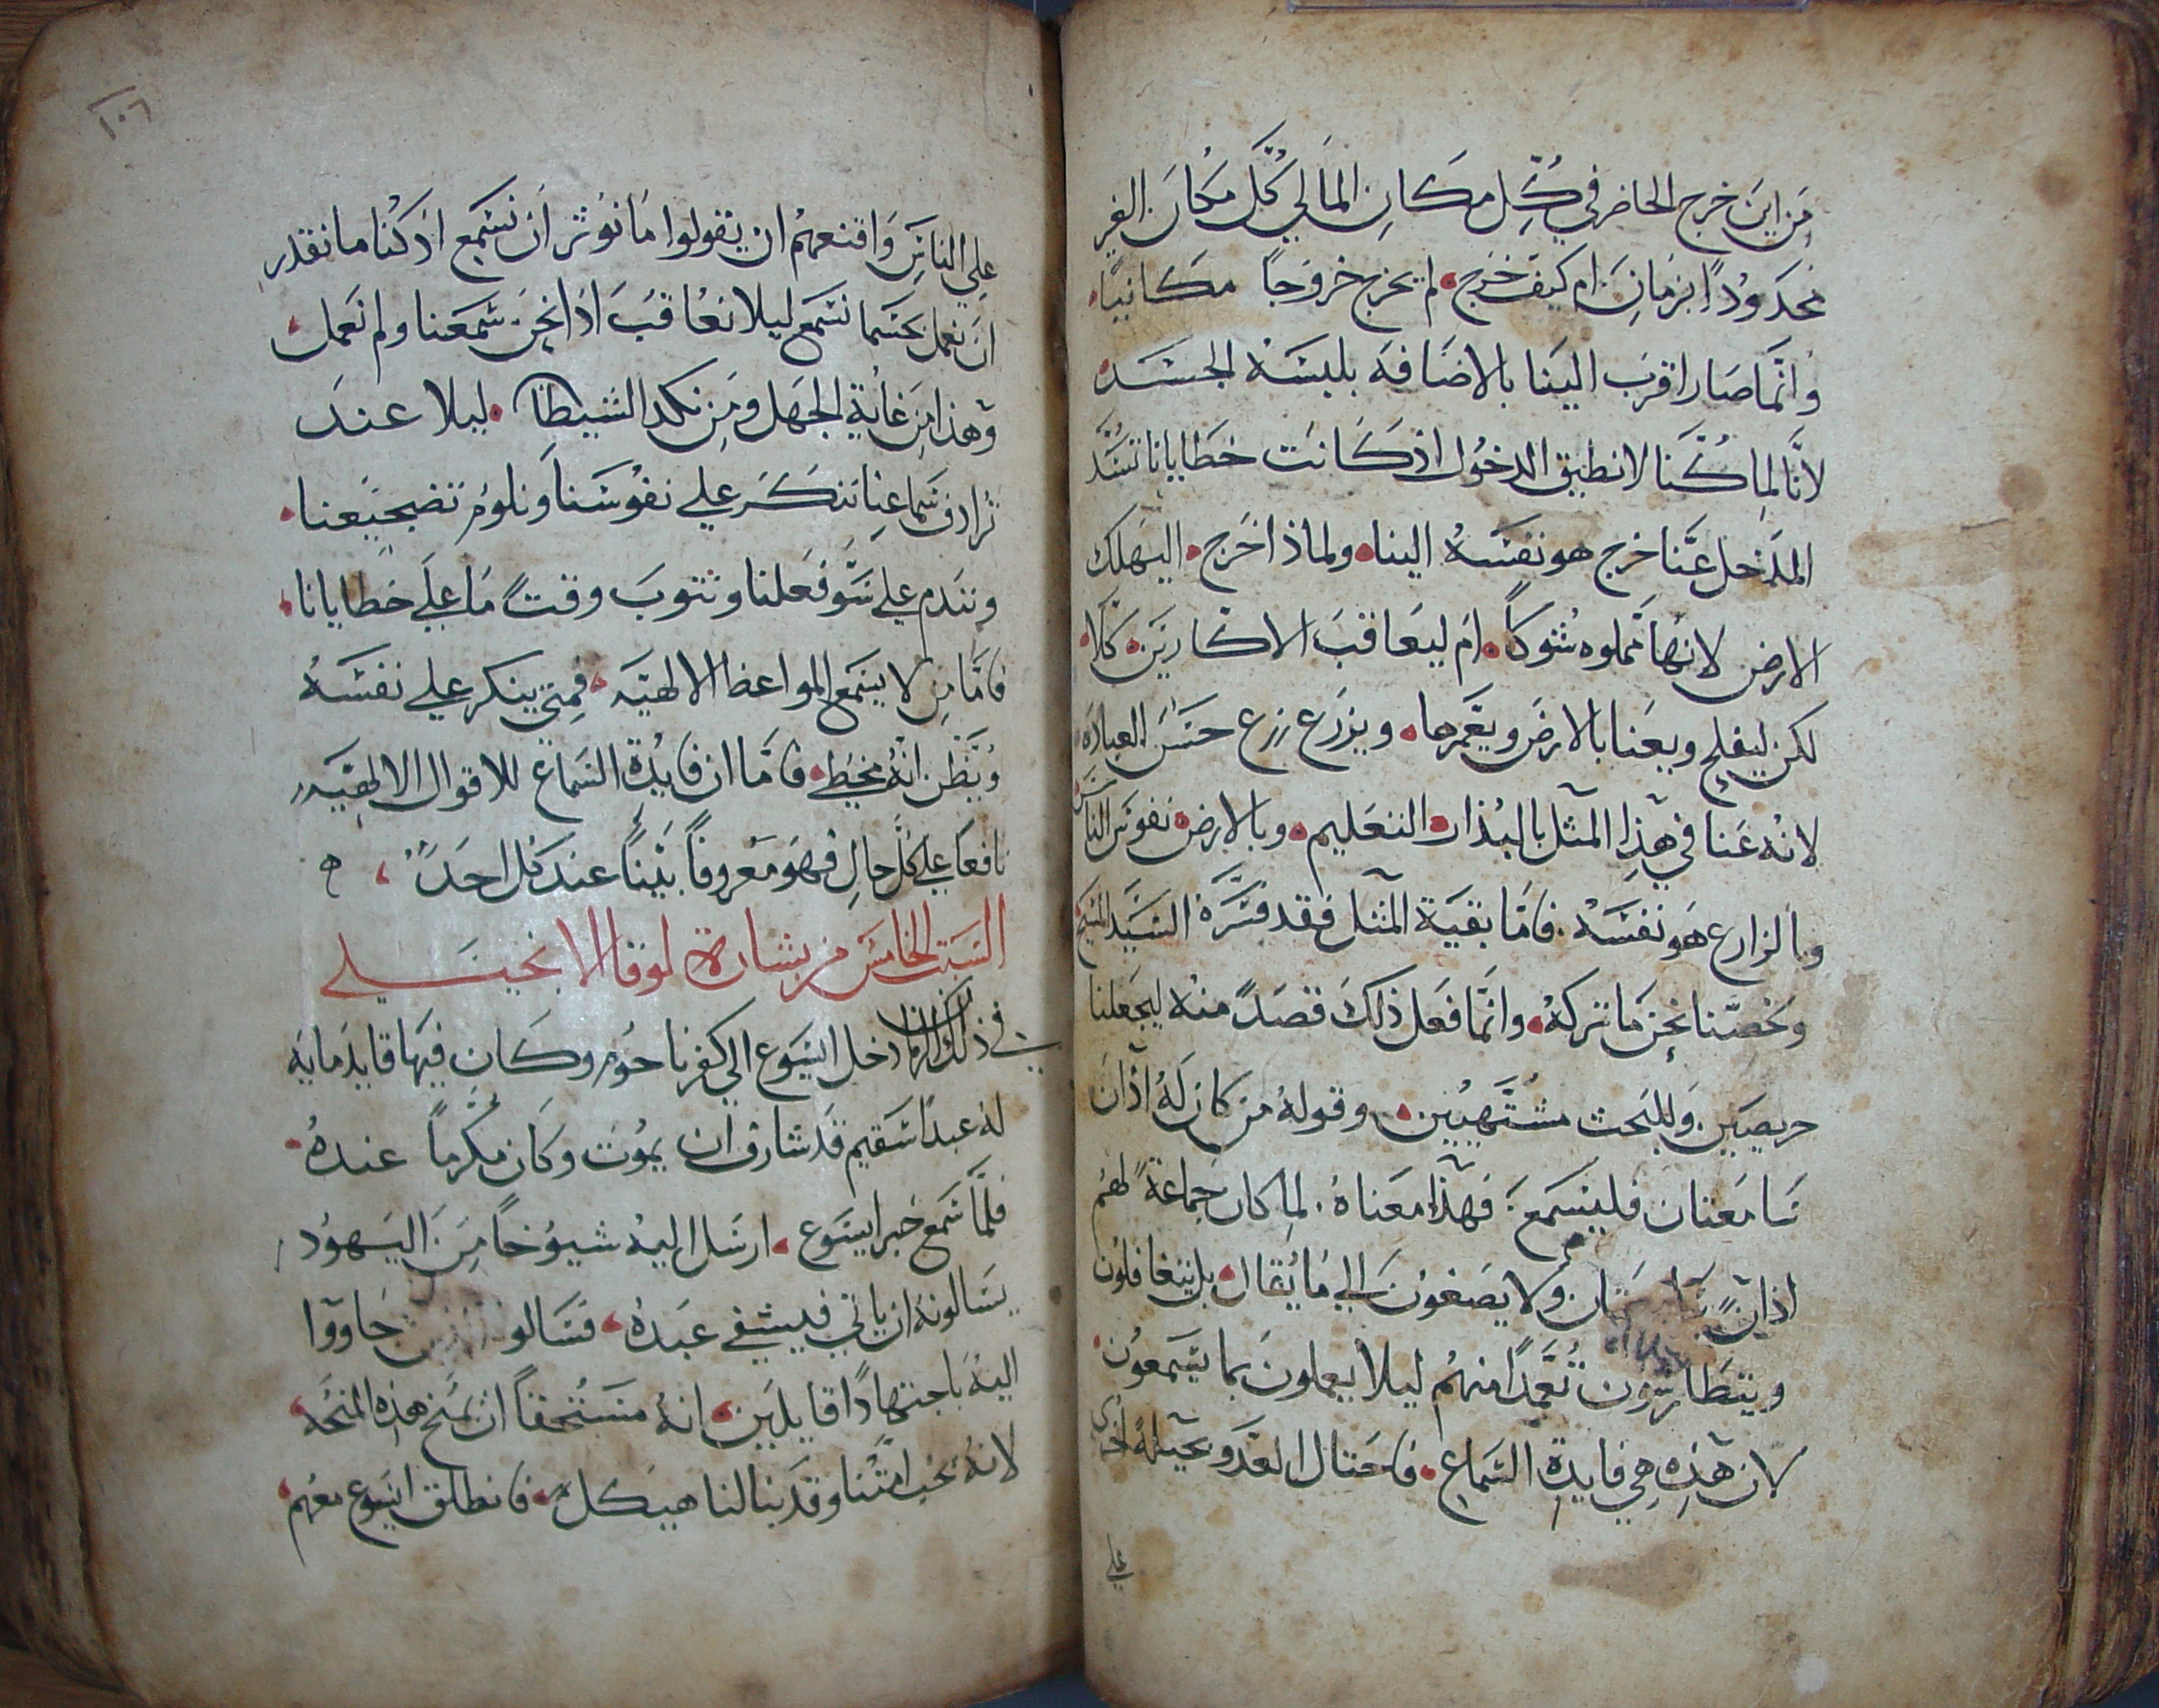 من اين خرج الحاضر في كل مكان المالي كل مكان الغير
محدودًا بزمان ام كيف خرج لم يخرج خروجًا مكانيًا
وانما صار اقرب الينا بالاضافه بلبسه الجسد
لانّا لما كنا لا نطيق الدخول اذ كانت خطايانا تسد
المدخل عنا خرج هو نفسه الينا ولماذا خرج اليهلك
الارض لانها مملوه شوكًا ام ليعاقب الاكارين كلا
لكن ليفلح ويعنا بالارض ويعمرها ويزرع زرع حسن العباده
لانه عنا في هذا المثل بالبذار التعليم وبالارض نفوس الناس
وبالزارع هو نفسه فاما بقية المثل فقد فسره السيد المسيح
وخصنا نحن ما تركه وانما فعل ذلك قصدً منه ليجعلنا
حريصين وللبحث مشتهيين وقوله من كان له اذان
سامعتان فليسمع فهذا معناه لما كان جماعة لهم
اذان ولا يصغون الي ما يقال بل يتغافلون
ويتطارشون تعمدًا منهم ليلا يعملون بما يسمعون
لان هذه هي فايدة السماع فاحتال العدو بحيلة اخري
علي
١٠٦
علي الناس واقنعهم ان يقولوا ما نوثر ان نسمع اذ كنا ما نقدر
ان نعمل بحسما نسمع ليلا نعاقب اذا نحن سمعنا ولم نعمل
وهذا من غاية الجهل ومن نكد الشيطان ليلا عند
ترادف سماعنا ننكر علي نفوسنا ونلوم تضجيعنا
ونندم علي سو فعلنا ونتوب وقت ما علي خطايانا
فاما من لا يسمع المواعظ الالهيه فمتي ينكر علي نفسه
ويظن انه مخطي فاما ان فايدة السماع للاقوال الالهيه
نافعا علي كل حال فهو معروفًا بينًا عند كل احد
السبت الخامس من بشارة لوقا الانجيلي
في ذلك الزمان دخل ايسوع الي كفرناحوم وكان فيها قايد مايه
له عبدًا سقيم قد شارف ان يموت وكان مكرمًا عنده
فلما سمع خبر ايسوع ارسل اليه شيوخًا من اليهود
يسالونه ان ياتي فيشفي عبده فسالو جاووا
اليه باجتهادًا قايلين انه مستحقًا ان تمنح هذه المنحه
لانه يحب امتنا وقد بنا لنا هيكل فانطلق ايسوع معهم